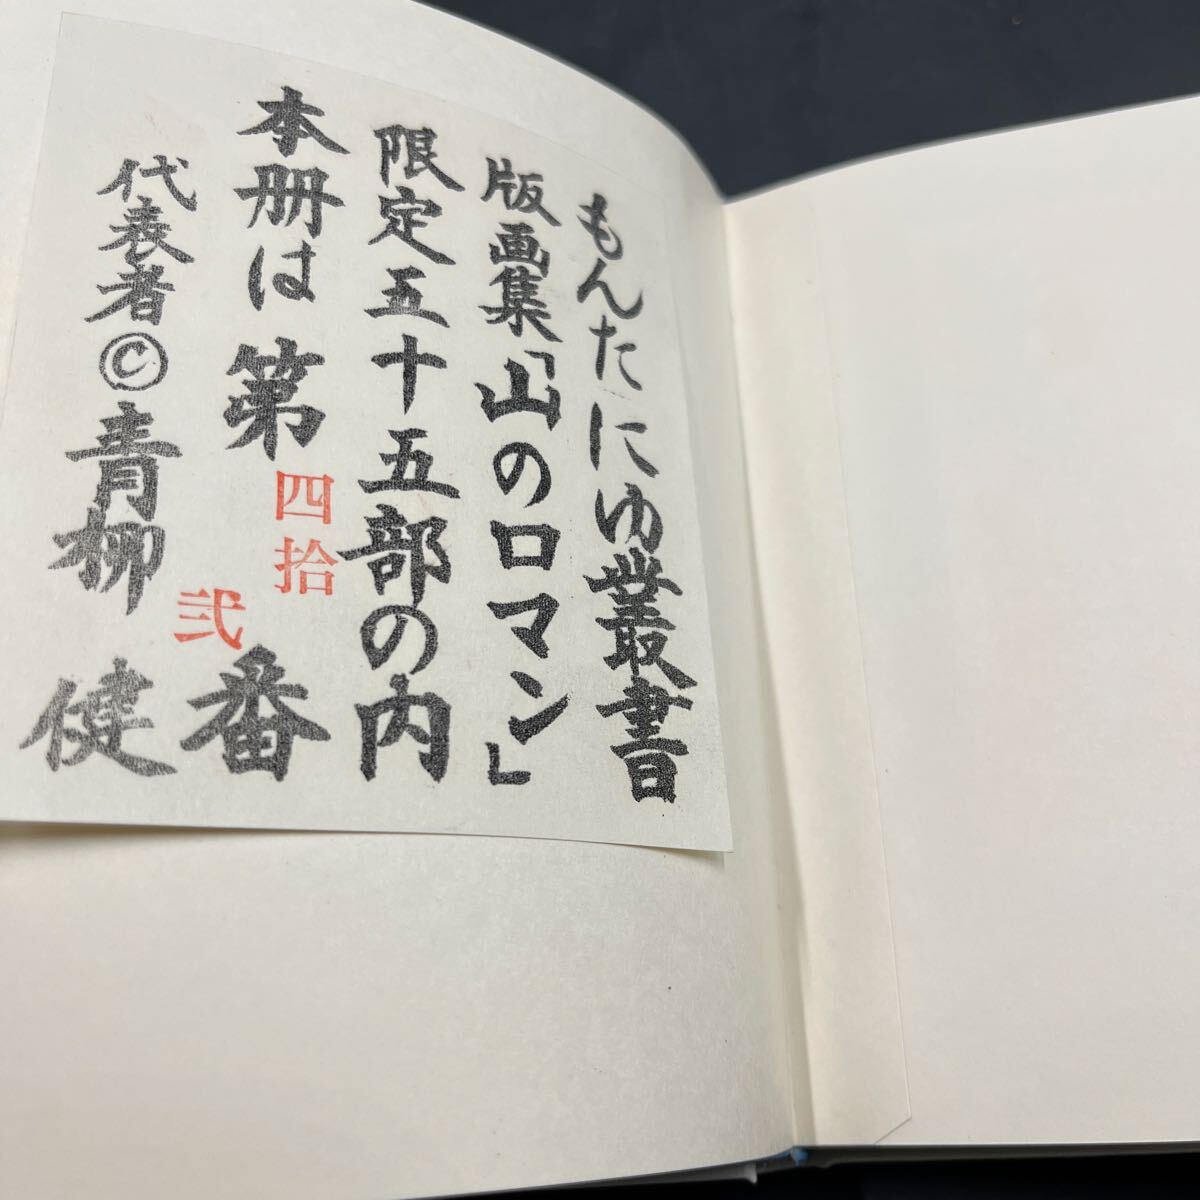 もんたにゆ叢書
版画集「山のロマン」
限定五十五部の内
本册は第四拾弐番
代表者©青柳健